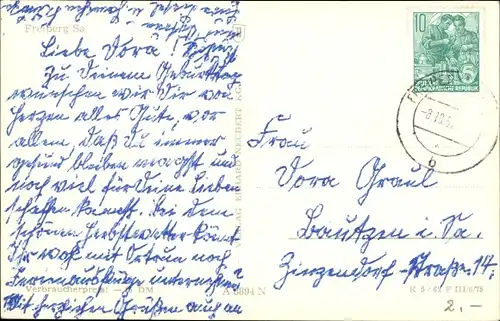 Freiberg Sa.
Liebe Dora!
Zu Deinem Geburtstag
wünschen wir Dir von
Herzen alles Gute, vor
allem, daß Du immer
gesund bleiben magst und
noch viel für Deine Lieben
schaffen kannst. Bei dem
schönen Herbstwetter könnt
Ihr wohl mit Ortrun noch
Ferienausflüge unternehmen?
Mit herzlichen Grüßen auch an
Verbraucherpreis: DM
A 6894 N
VERLAG ERHARD NEUBERT KG
10
5
DEUTSCHE
DEMOKRATISCHE REPUBLIK
FREIBERG
b
Frau
Dora Graul
Bautzen i. Sa.
Zinzendorf-Straße 14.
R 5/62 F III/6/15
2.-